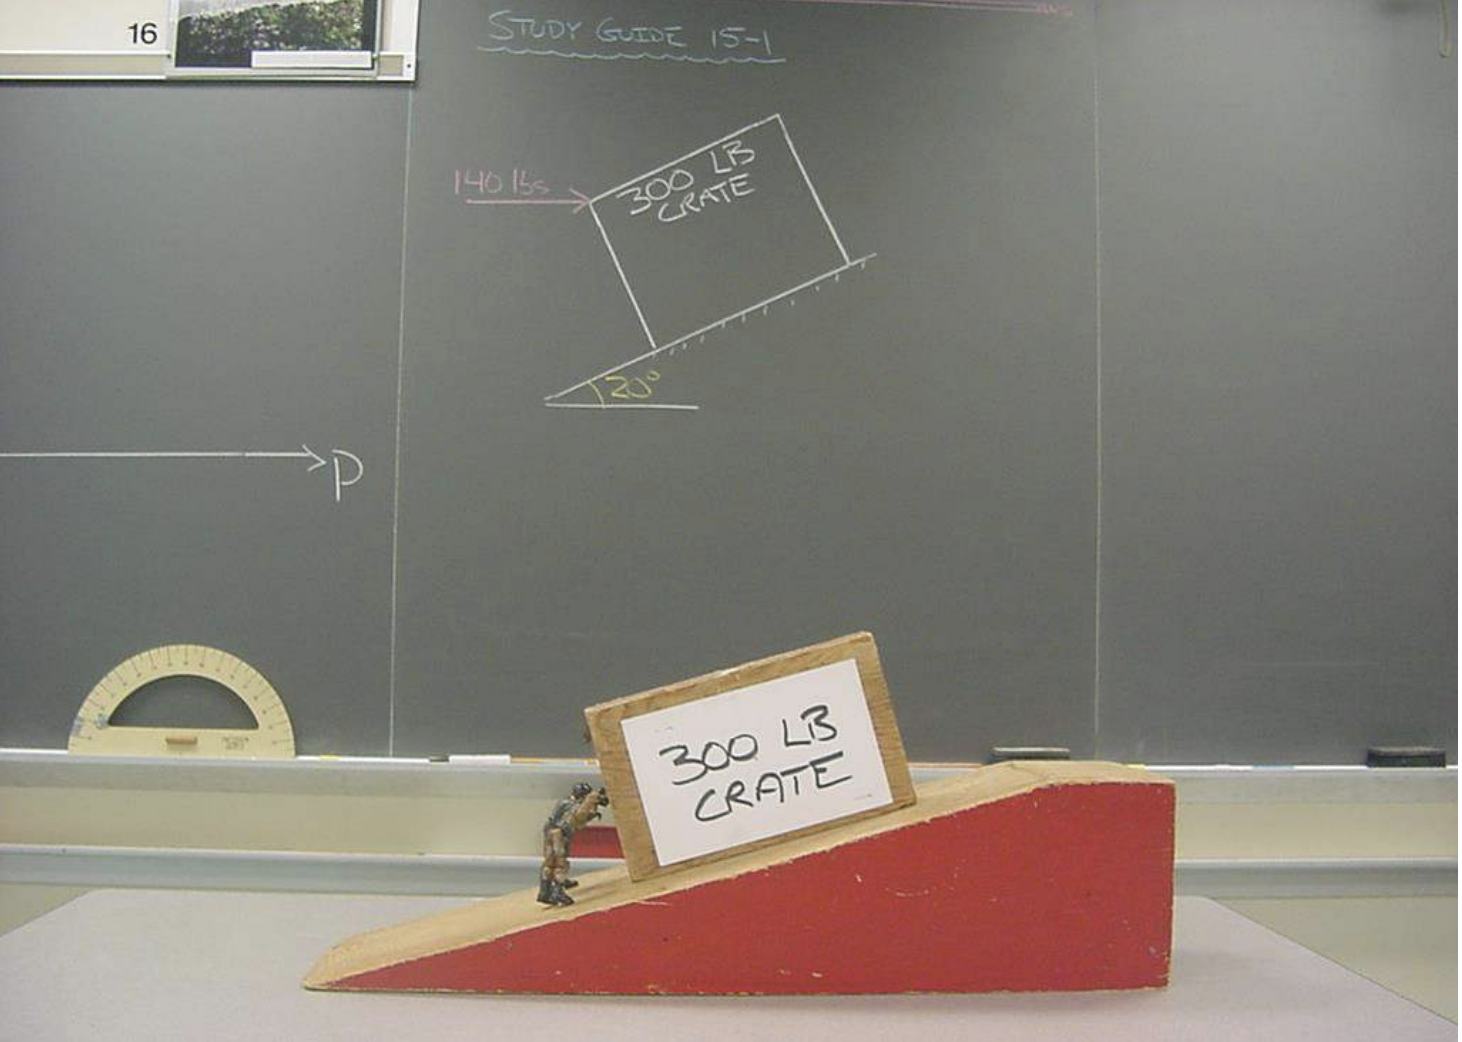 16
STUDY GUIDE 15-1
140 lbs
300 LB
CRATE
20°
P
300 LB
CRATE